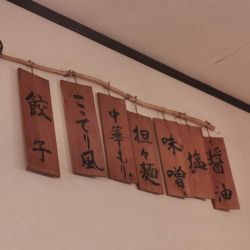 醤油
塩
味噌
担々麺
中華もり
こってり風
餃子